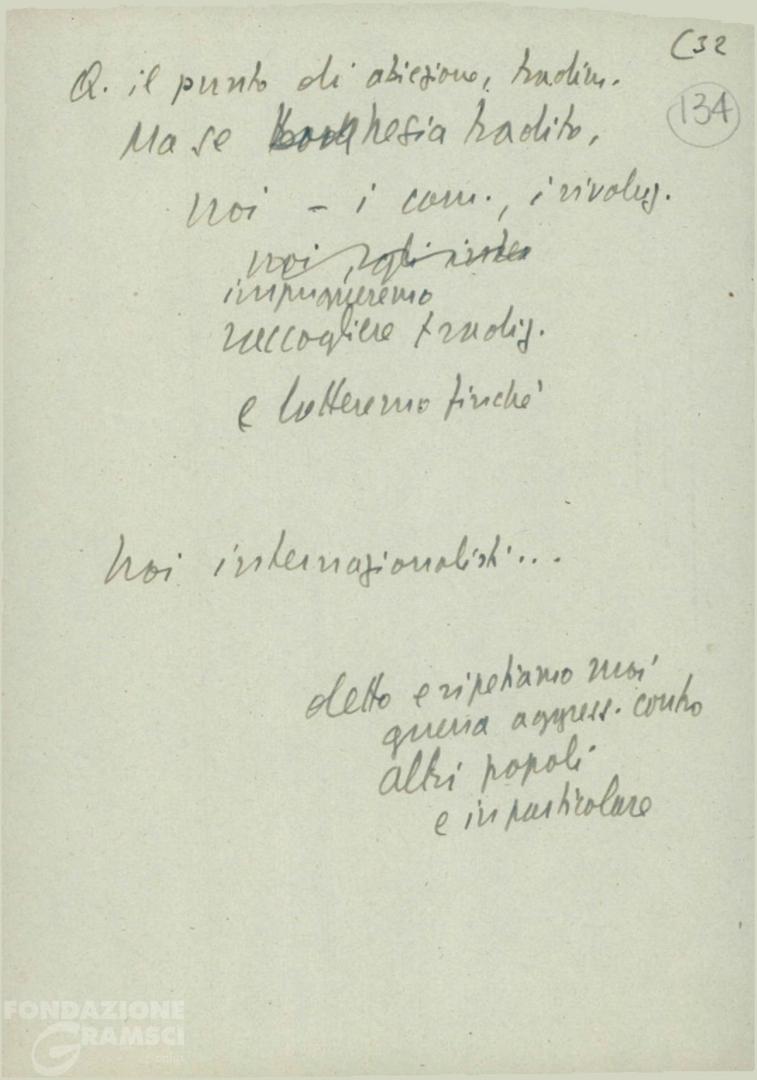 C32
134
Q. il punto di abiezione, tradim.
Ma se borghesia tradito,
noi – i com., i rivoluz.
noi, gli
impugneremo
raccogliere tradiz.
e lotteremo finché
Noi internazionalisti...
detto e ripetiamo mai
guerra aggress. contro
altri popoli
e in particolare
FONDAZIONE
GRAMSCI